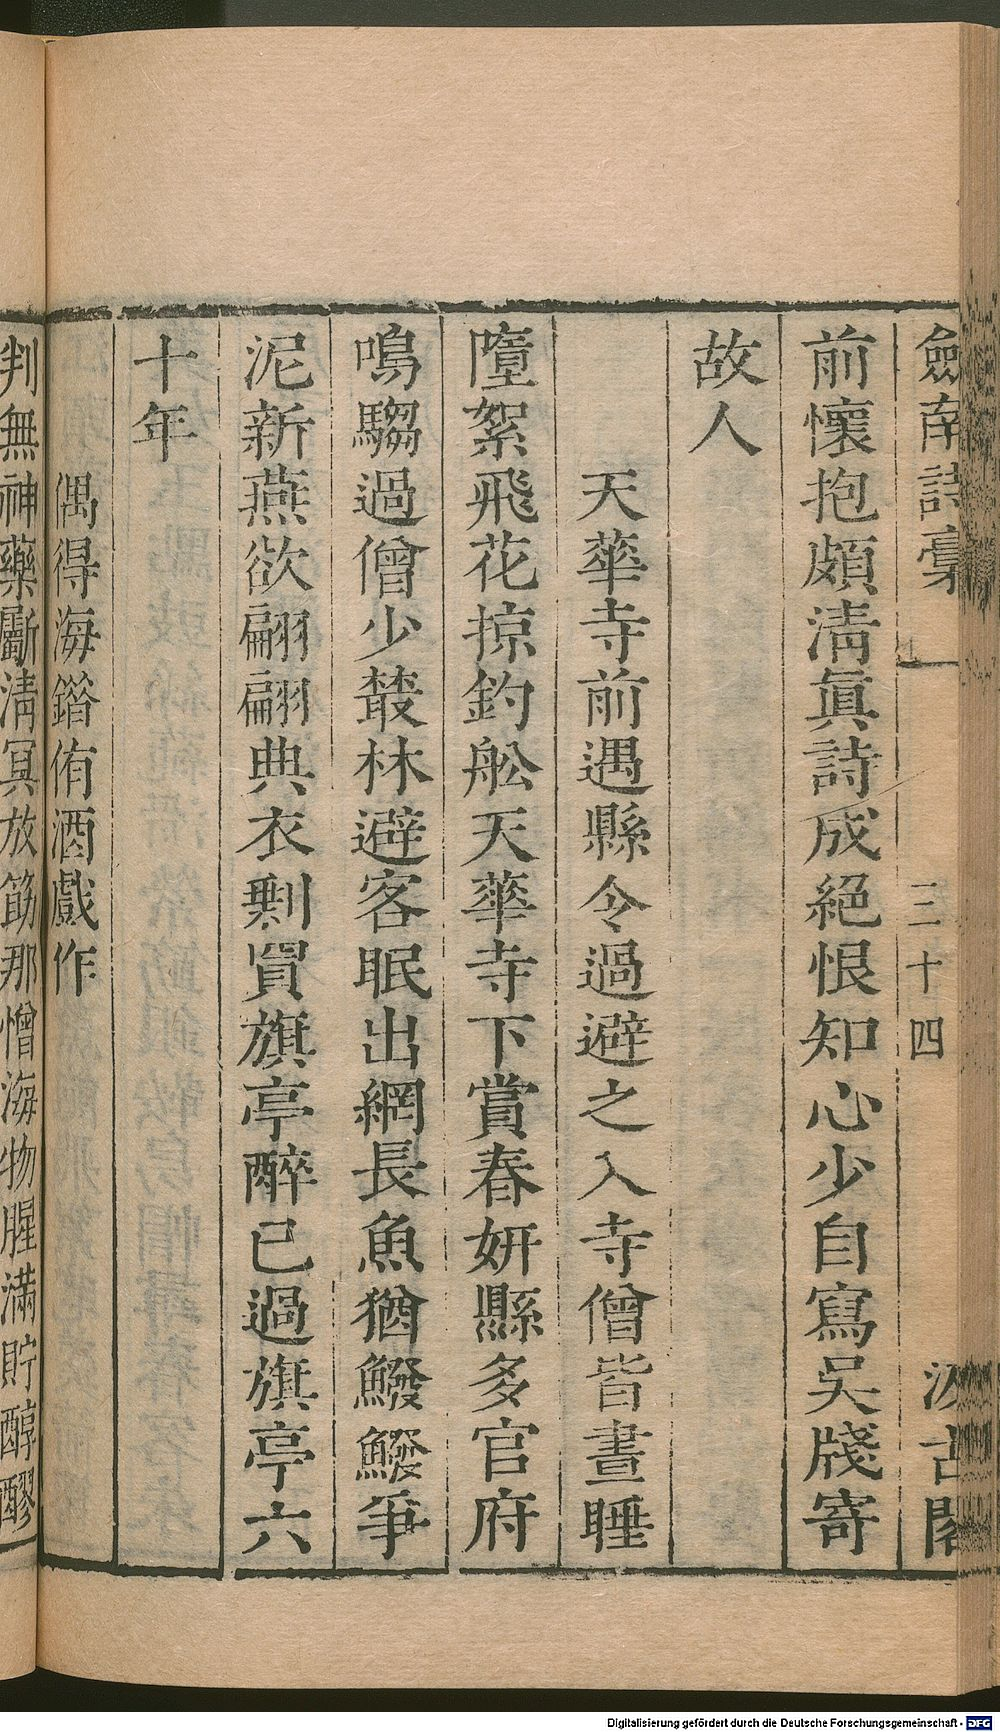 劍南詩稾 三十四 汲古閣
前懷抱頗淸眞詩成絕恨知心少自寫吳牋寄
故人
天華寺前遇縣令過避之入寺僧皆晝睡
墮絮飛花掠釣舩天華寺下賞春妍縣多官府
鳴騶過僧少叢林避客眠出網長魚猶鱍鱍爭
泥新燕欲翩翩典衣剩買旗亭醉已過旗亭六
十年
偶得海錯侑酒戲作
判無神藥斸淸冥放筯那憎海物腥滿貯醇醪
Digitalisierung gefördert durch die Deutsche Forschungsgemeinschaft - DFG